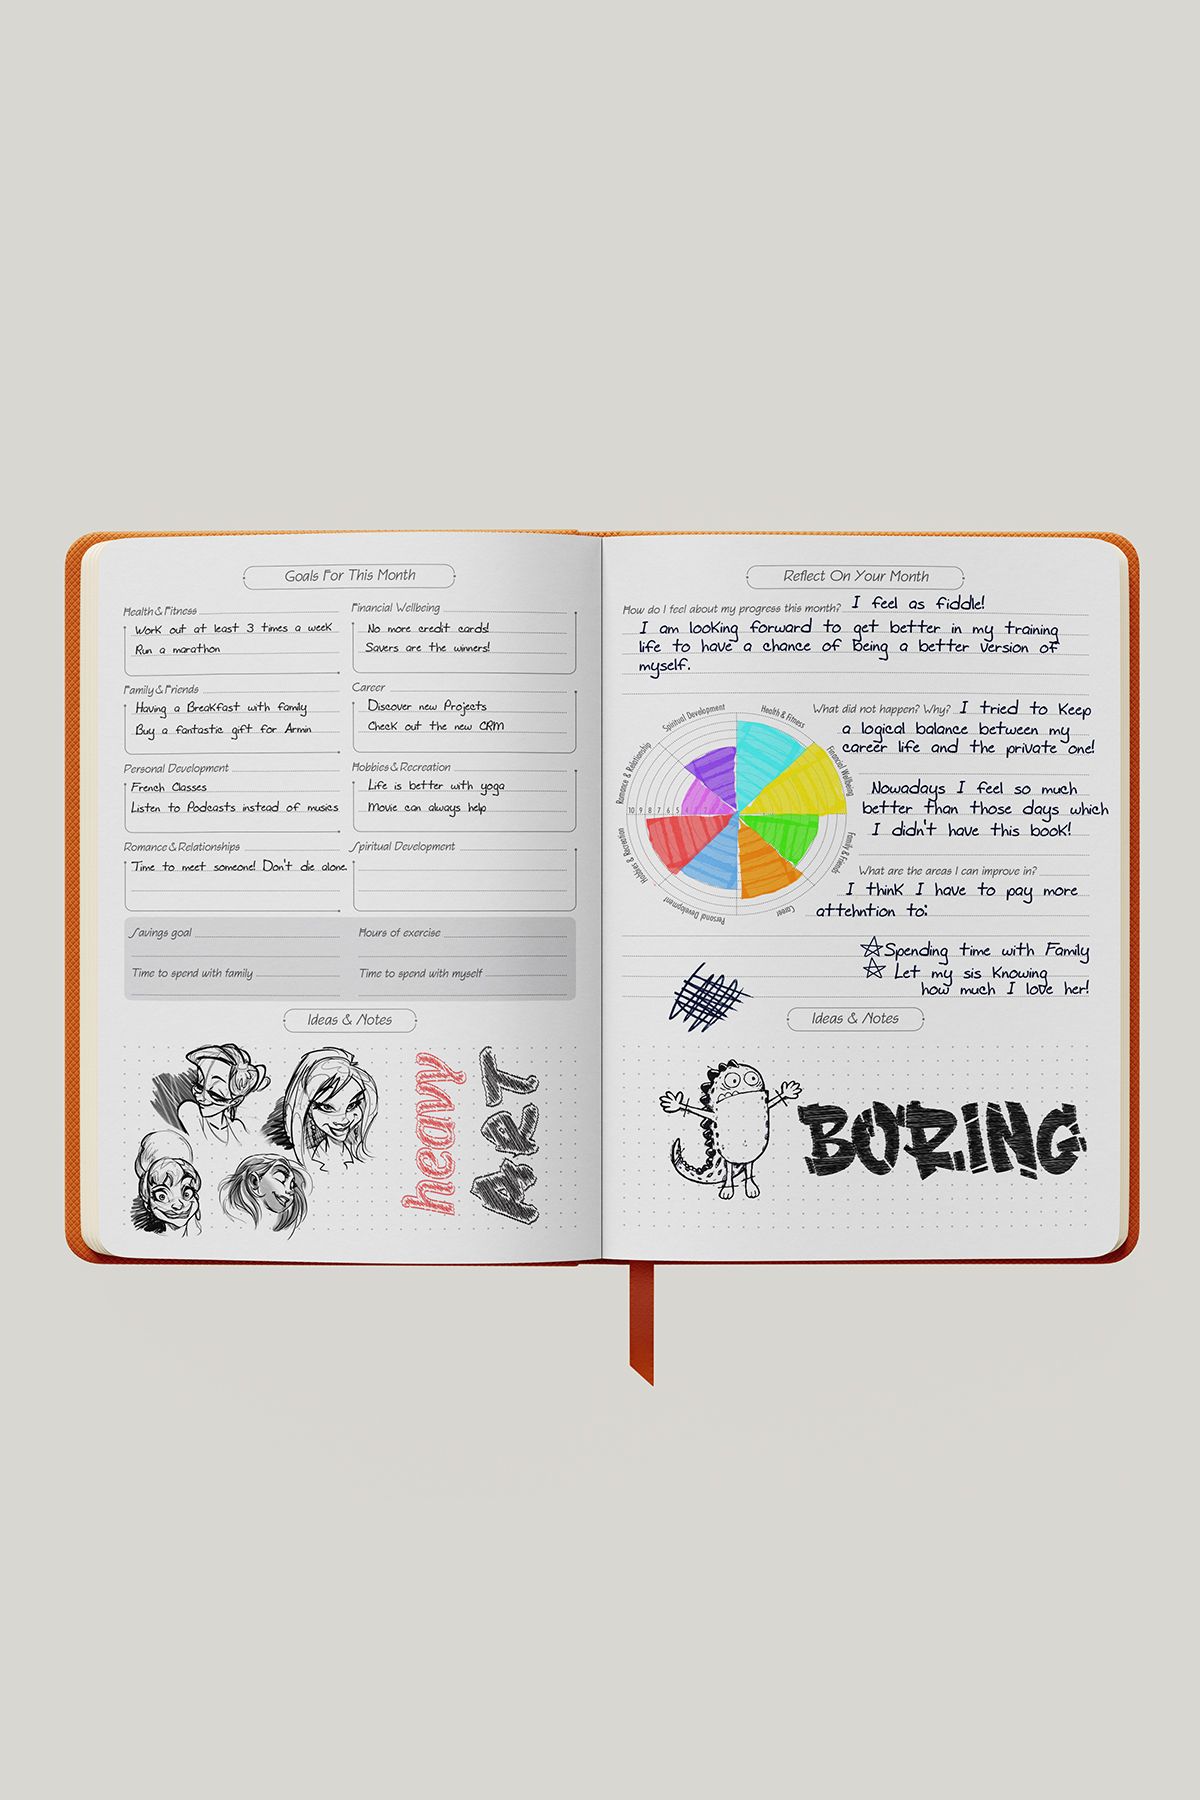 Goals For This Month
Health & Fitness
Work out at least 3 times a week
Run a marathon
Financial Wellbeing
No more credit cards!
Savers are the winners!
Family & Friends
Having a Breakfast with family
Buy a fantastic gift for Armin
Career
Discover new Projects
Check out the new CRM
Personal Development
French Classes
Listen to Podcasts instead of musics
Hobbies & Recreation
Life is better with yoga
Movie can always help
Romance & Relationships
Time to meet someone! Don't die alone.
Spiritual Development
Savings goal
Hours of exercise
Time to spend with family
Time to spend with myself
Ideas & Notes
heavy
ART
Reflect On Your Month
How do I feel about my progress this month? I feel as fiddle!
I am looking forward to get better in my training
life to have a chance of being a better version of
myself.
What did not happen? Why? I tried to keep
a logical balance between my
career life and the private one!
Nowadays I feel so much
better than those days which
I didn't have this book!
What are the areas I can improve in?
I think I have to pay more
attehntion to:
Spending time with Family
Let my sis Knowing
how much I love her!
Spiritual Development
Health & Fitness
Financial Wellbeing
Family & Friends
Career
Personal Development
Hobbies & Recreation
Romance & Relationship
10 9 8 7 6 5
Ideas & Notes
BORING